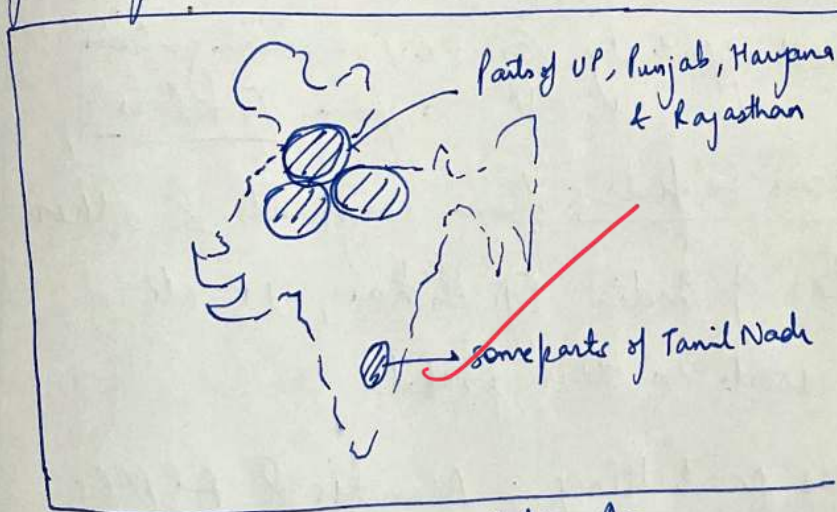 Parts of UP, Punjab, Haryana
& Rajasthan
some parts of Tamil Nadu